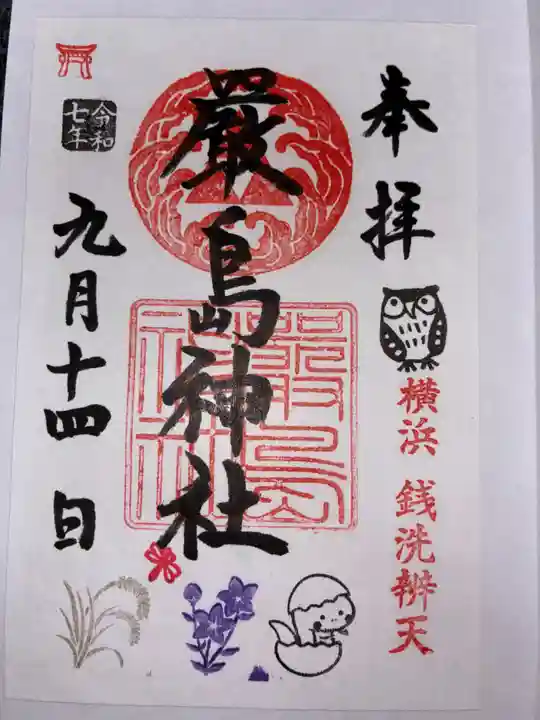 奉拝
横浜 銭洗辨天
嚴島神社
嚴島神社
令和七年
九月十四日